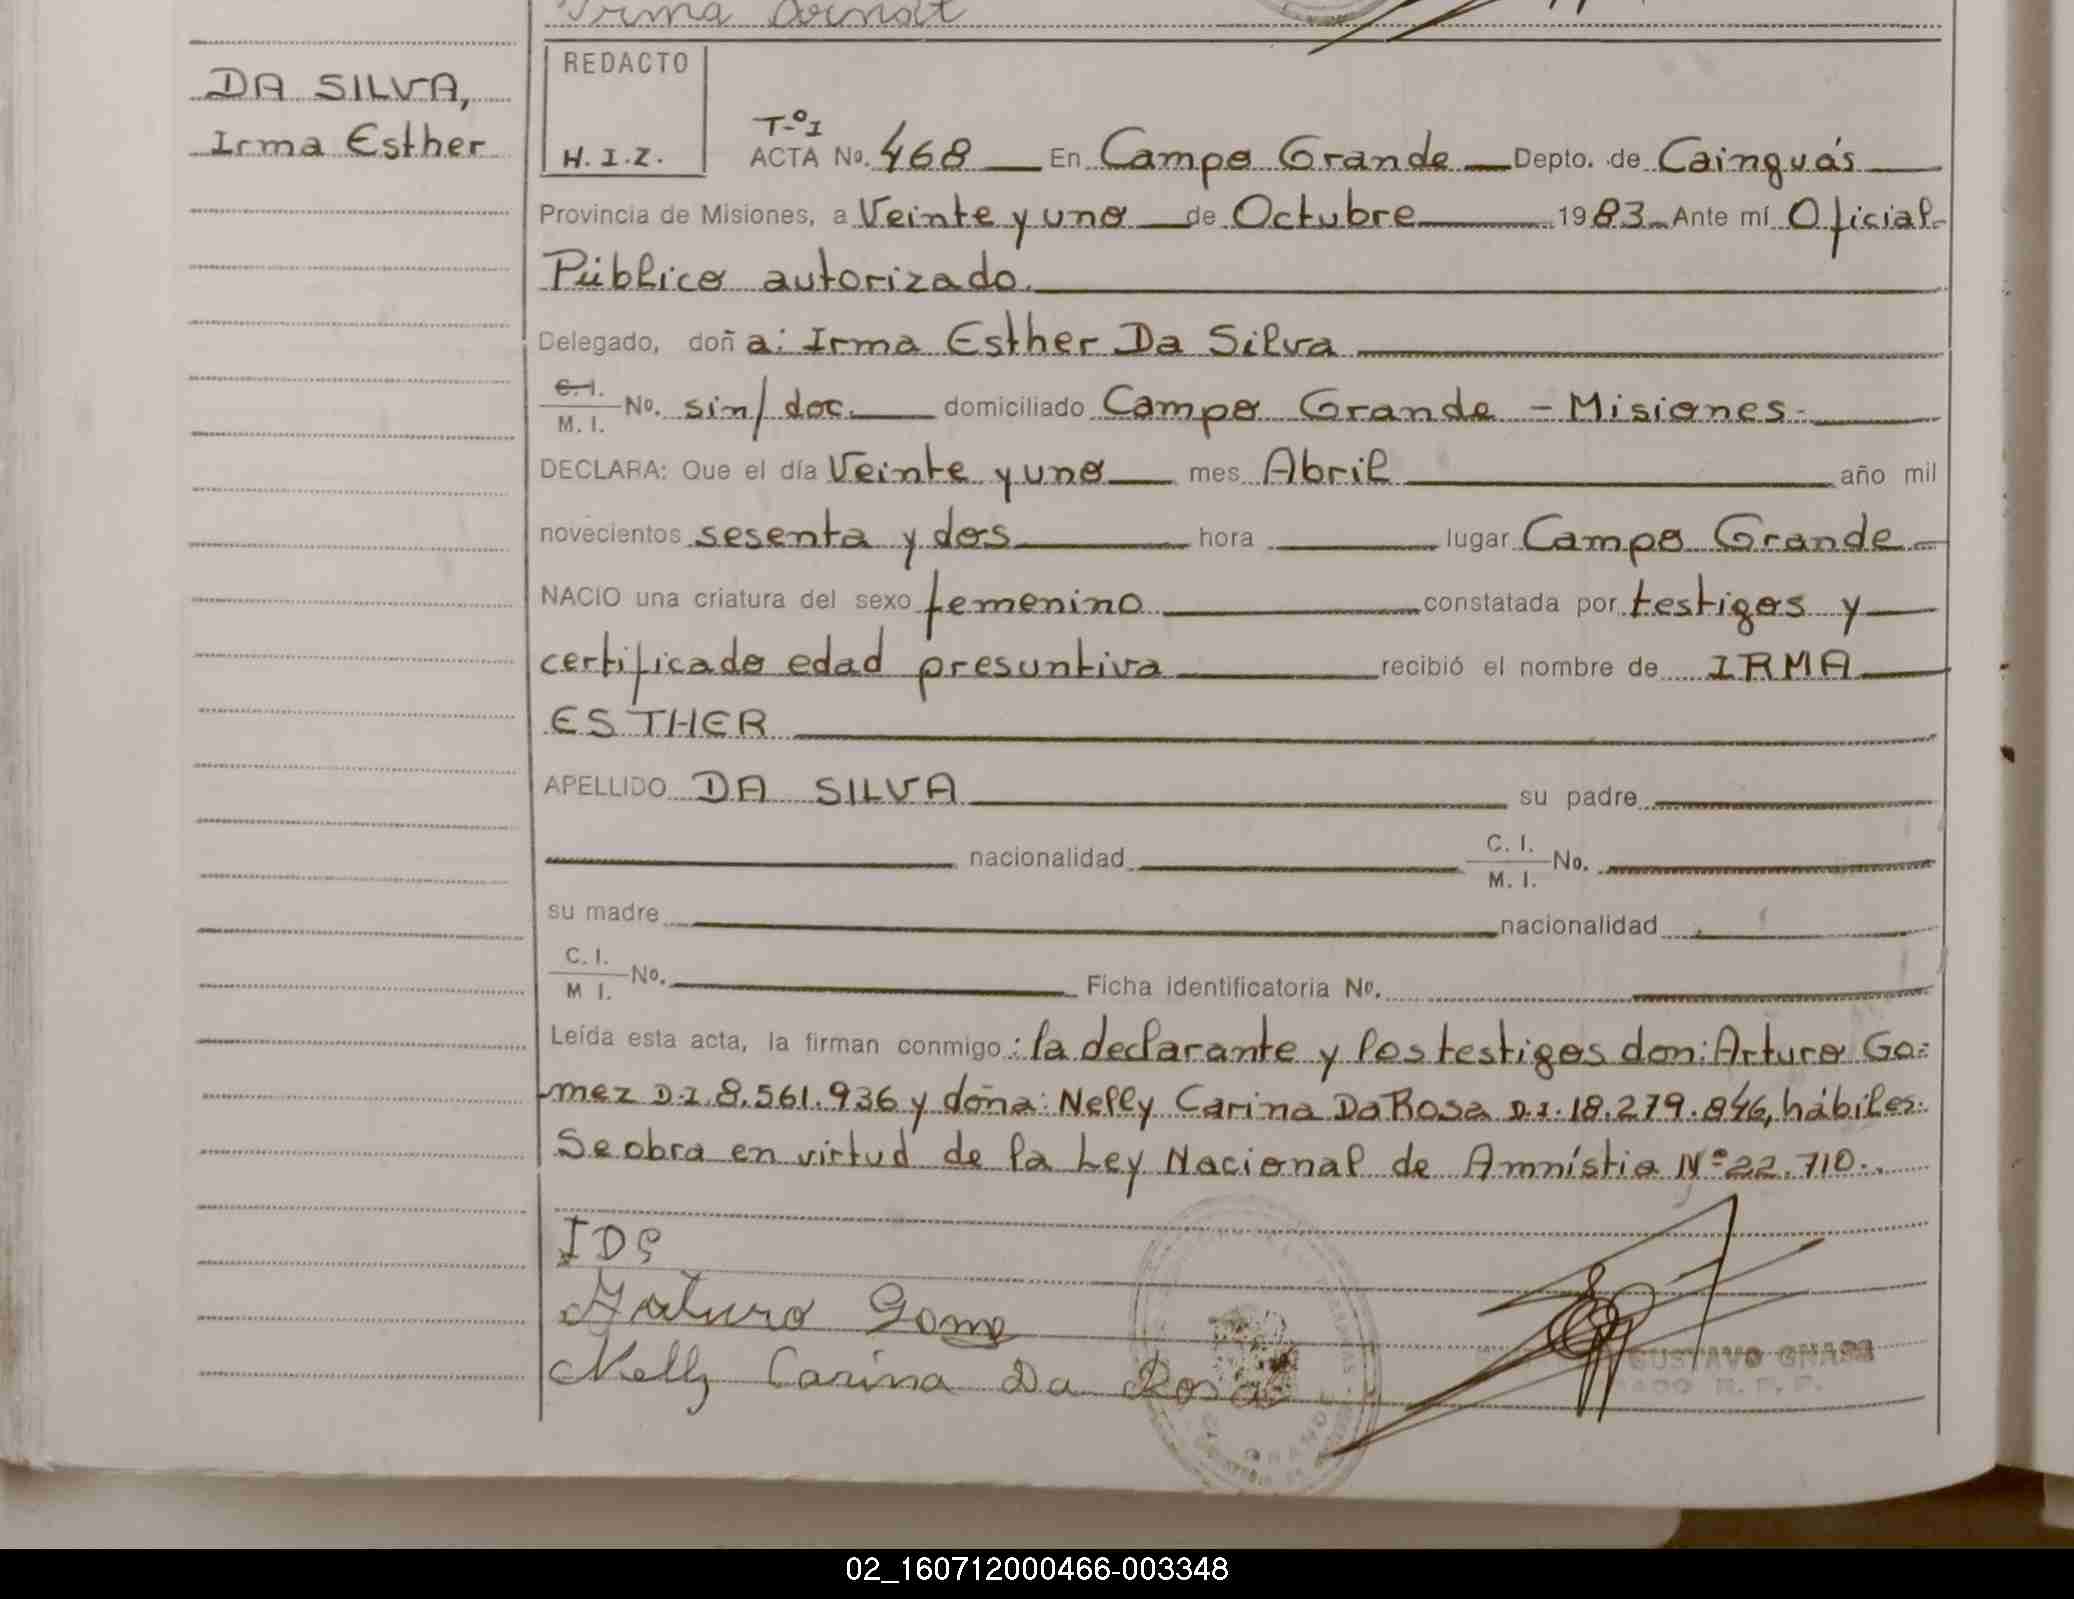 Irma Arndt
DA SILVA,
Irma Esther
REDACTO
H. I. Z.
T-º I
ACTA No. 468 En Campo Grande Depto. de Cainguás
Provincia de Misiones, a Veinte y uno de Octubre 1983 Ante mí Oficial
Público autorizado.
Delegado, doña: Irma Esther Da Silva
C. I.
M. I. No. sin/doc. domiciliado Campo Grande - Misiones.
DECLARA: Que el día Veinte y uno mes Abril año mil
novecientos sesenta y dos hora lugar Campo Grande
NACIO una criatura del sexo femenino constatada por testigos y
certificado edad presuntiva recibió el nombre de IRMA
ESTHER
APELLIDO DA SILVA su padre
nacionalidad C. I. M. I. No.
su madre nacionalidad
C. I. M I. No. Ficha identificatoria No.
Leída esta acta, la firman conmigo: la declarante y los testigos don: Arturo Go-
mez D.I. 8.561.936 y doña: Nelly Carina Da Rosa D.I. 18.279.846, hábiles.
Se obra en virtud de la Ley Nacional de Amnistia Nº 22.710.
IDS
Arturo Gome
Nelly Carina Da Rosa
GUSTAVO
02_160712000466-003348